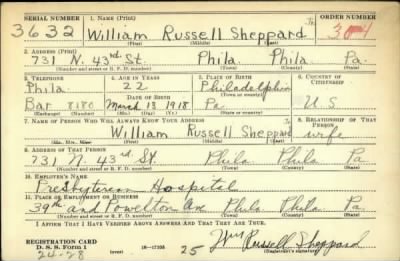 SERIAL NUMBER 1. Name (Print) ORDER NUMBER
3632 William Russell Sheppard Jr. 304
(First) (Middle) (Last)
2. Address (Print)
731 N. 43rd St. Phila. Phila Pa.
(Number and street or R. F. D. number) (Town) (County) (State)
3. Telephone 4. Age in Years 5. Place of Birth 6. Country of Citizenship
Phila. 22 Philadelphia
Date of Birth (Town or county)
Bar 8180 March 13 1918 Pa. U S
(Exchange) (Number) (Mo.) (Day) (Yr.) (State or country)
7. Name of Person Who Will Always Know Your Address 8. Relationship of That Person
William Russell Sheppard wife
(Mr., Mrs., Miss) (First) (Middle) (Last)
9. Address of That Person
731 N. 43rd St. Phila Phila Pa.
(Number and street or R. F. D. number) (Town) (County) (State)
10. Employer's Name
Presbyterian Hospital
11. Place of Employment or Business
39th and Powelton Ave Phila Phila Pa.
(Number and street or R. F. D. number) (Town) (County) (State)
I Affirm That I Have Verified Above Answers and That They Are True.
Registration Card
D. S. S. Form 1 (over) 16—17105 25 Wm Russell Sheppard
24-28 (Registrant's signature)